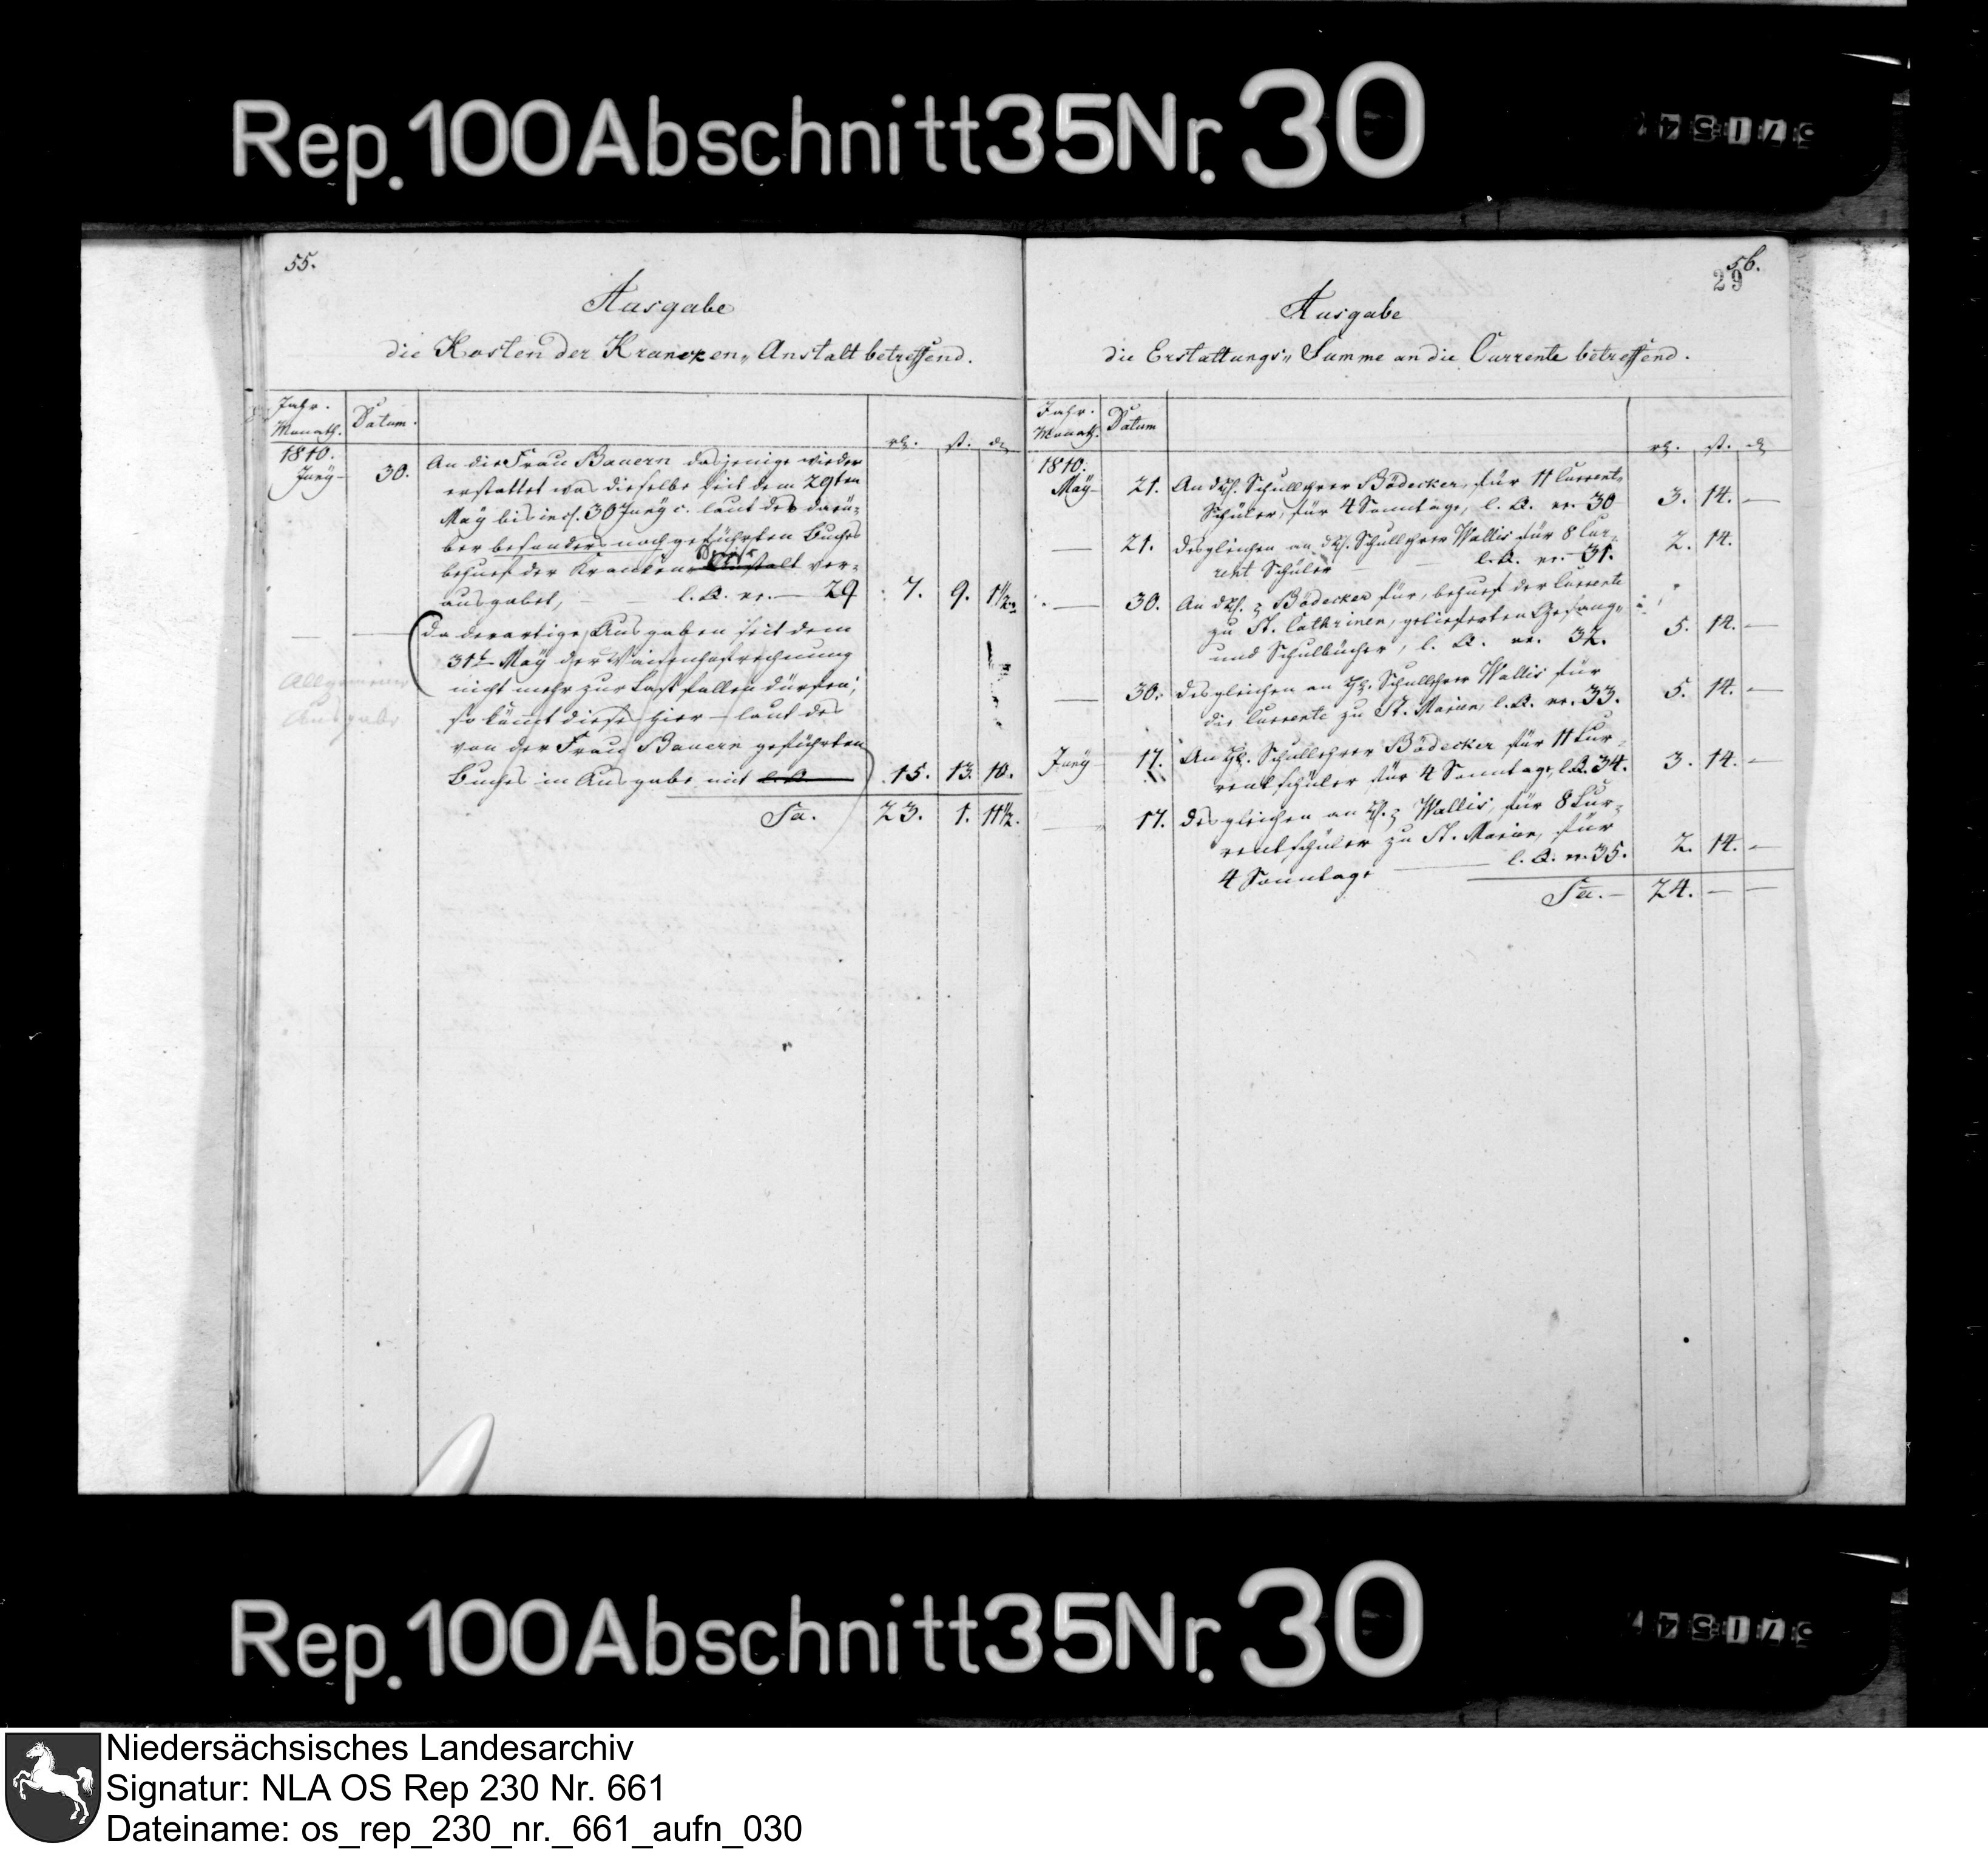 Rep. 100 Abschnitt 35 Nr. 30
55.
Ausgabe
die Kosten der Krancken„ Anstalt betreffend.
Jahr. Monath. Datum.
rt. ß. d
1810.
Juny 30. An die Frau Bauern dasjenige wieder
erstattet was dieselbe seit dem 29ten
May bis incl. 30 Juny c. laut des darü-
ber besonders noch geführten Buches
behuef der Krancken Anstalt ver-
ausgabet, — l. A. nr. — 29 7. 9. 1½
— — da derartige Ausgaben seit dem
31t May der Waisenhofrechnung
nicht mehr zur Last fallen dürfen;
Allgemeine
Ausgabe
so kömt diese hier laut des
von der Frau Bauern geführten
Buches in Ausgabe mit l. A. 15. 13. 10.
Sa. 23. 1. 11½.
56.
29
Ausgabe
die Erstattungs„ Summe an die Currente betreffend.
Jahr. Monath. Datum
rt. ß. d
1810.
May 21. An d H. Schullehrer Bödecker, für 11 Current-
Schüler, für 4 Sonntage, l. A. nr. 30 3. 14. —
— 21. desgleichen an d H. Schullehrer Wallis für 8 Cur-
rent Schüler — l. A. nr. 31. 2. 14.
— 30. An d H. Bödecker für, behuef der Currente
zu St. Cathrinen, gelieferten Gesang„
und Schulbücher, l. A. nr. 32. 5. 14. —
— 30. desgleichen an H. Schullehrer Wallis für
die Currente zu St. Marien, l. A. nr. 33. 5. 14. —
Juny 17. An H. Schullehrer Bödecker für 11 Cur-
rentschüler für 4 Sonntage, l. A. 34. 3. 14. —
— 17. desgleichen an H. Wallis, für 8 Cur-
rentschüler zu St. Marien, für
4 Sonntage — l. A. nr. 35. 2. 14. —
Sa. — 24. — —
Rep. 100 Abschnitt 35 Nr. 30
Niedersächsisches Landesarchiv
Signatur: NLA OS Rep 230 Nr. 661
Dateiname: os_rep_230_nr._661_aufn_030